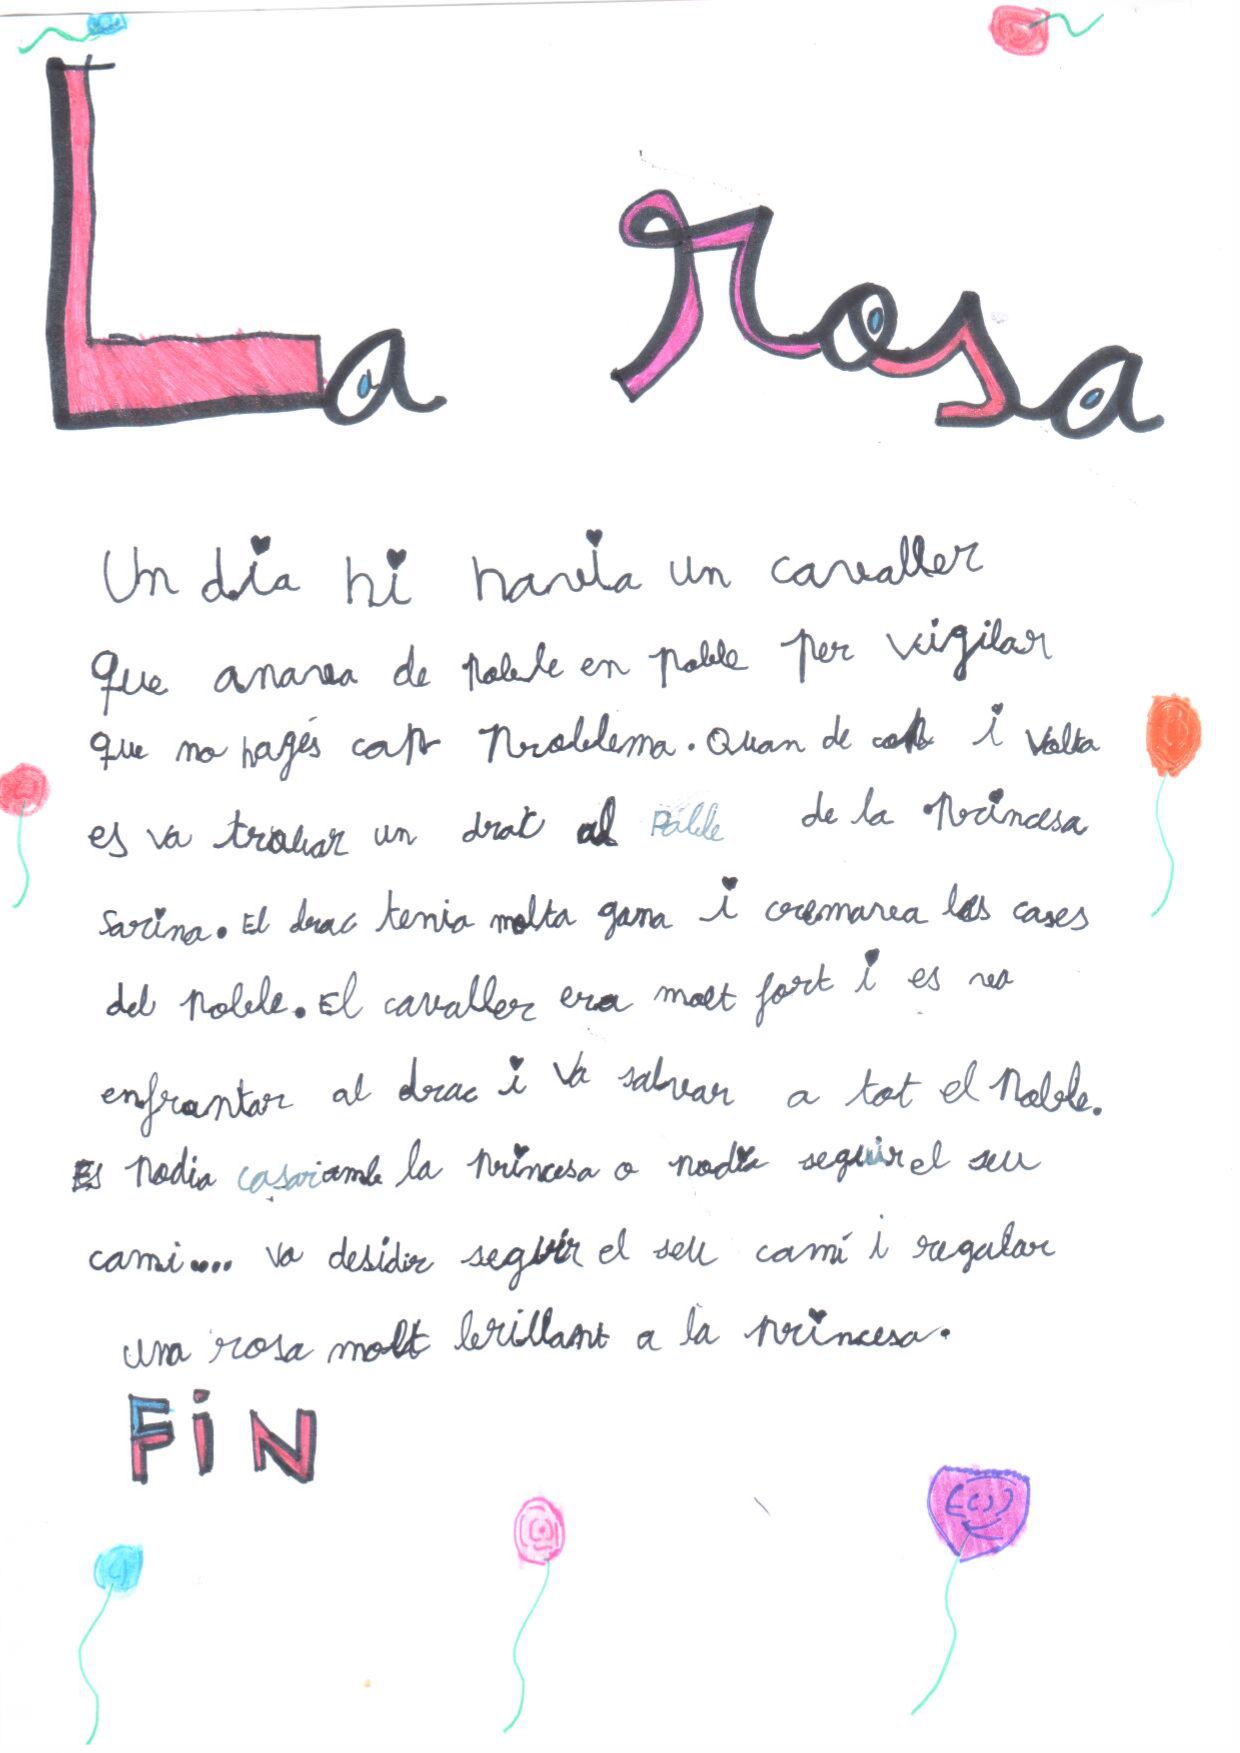 La rosa
Un dia hi havia un cavaller
que anava de poble en poble per veigilar
que no hagés cap problema. Quan de cop i volta
es va trobar un drac al Poble de la princesa
Sarina. El drac tenia molta gana i cremava les cases
del poble. El cavaller era molt fort i es va
enfrontar al drac i va salvar a tot el poble.
Es podia casar amb la princesa o podia seguir el seu
cami.... va desidir seguir el seu camí i regalar
una rosa molt brillant a la princesa.
FiN